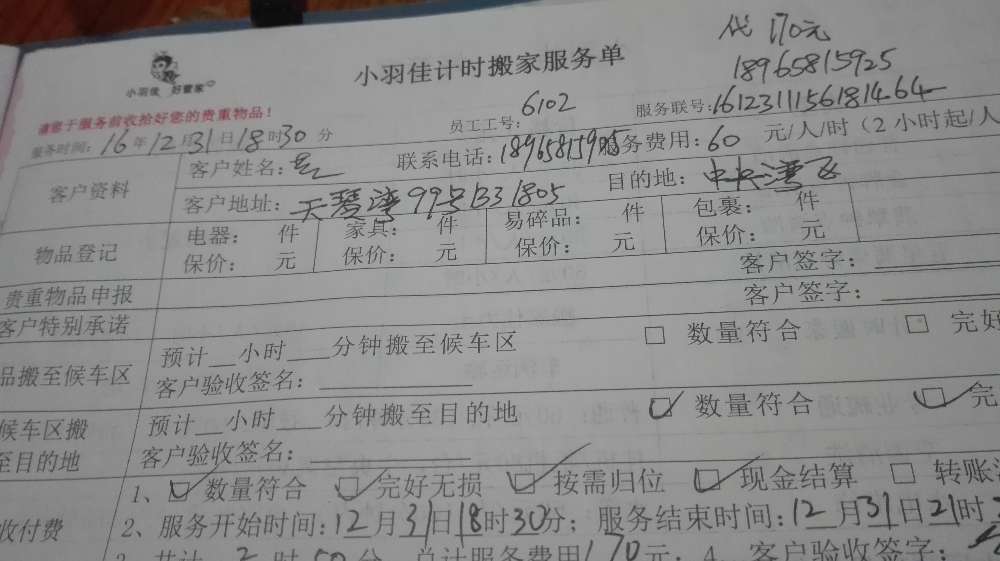 代 170元
18965815925
小羽佳 好管家
小羽佳计时搬家服务单
请您于服务前收拾好您的贵重物品!
员工工号: 6102
服务联号: 161231115618146 4
服务时间: 16年12月31日18时30分
客户资料
客户姓名:
联系电话: 18965815925
服务费用: 60 元/人/时(2小时起/人
客户地址: 天琴湾99号1331805
目的地: 中央湾区
物品登记
电器: 件 家具: 件 易碎品: 件 包裹: 件
保价: 元 保价: 元 保价: 元 保价: 元
贵重物品申报
客户签字:
客户特别承诺
客户签字:
品搬至候车区
预计__小时___分钟搬至候车区
□ 数量符合 □ 完好
客户验收签名:
候车区搬
至目的地
预计__小时___分钟搬至目的地
☑ 数量符合 ☑ 完
客户验收签名:
收付费
1、☑ 数量符合 ☑ 完好无损 ☑ 按需归位 ☑ 现金结算 □ 转账
2、服务开始时间: 12月31日18时30分; 服务结束时间: 12月31日21时
3 共计 2时50分 总计服务费用170元; 4、客户验收签字: